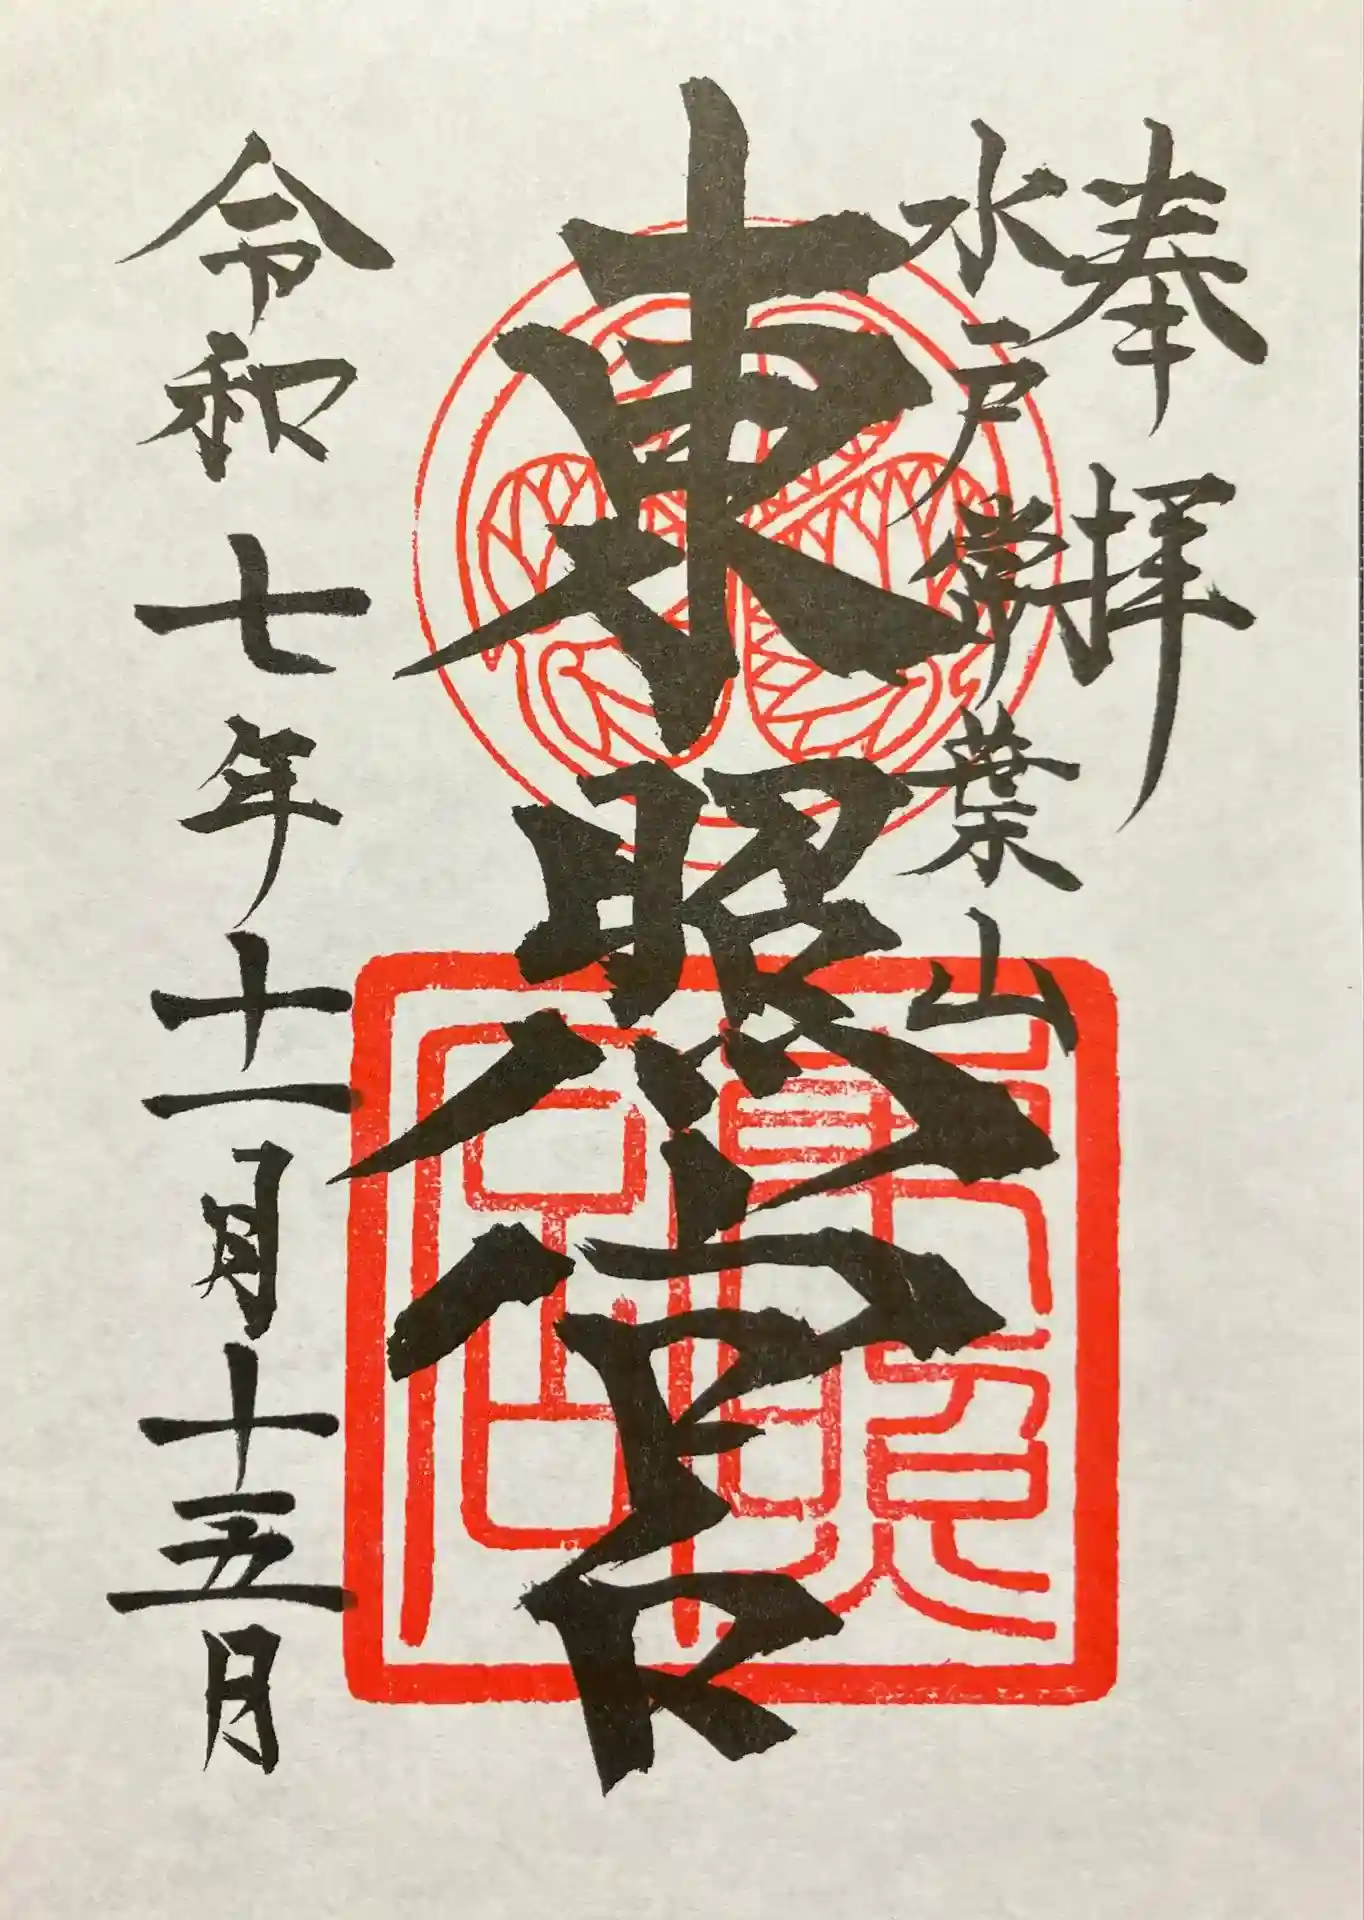 奉拝
水戸常葉山
東照宮
令和七年十一月十五日
東照
宮印